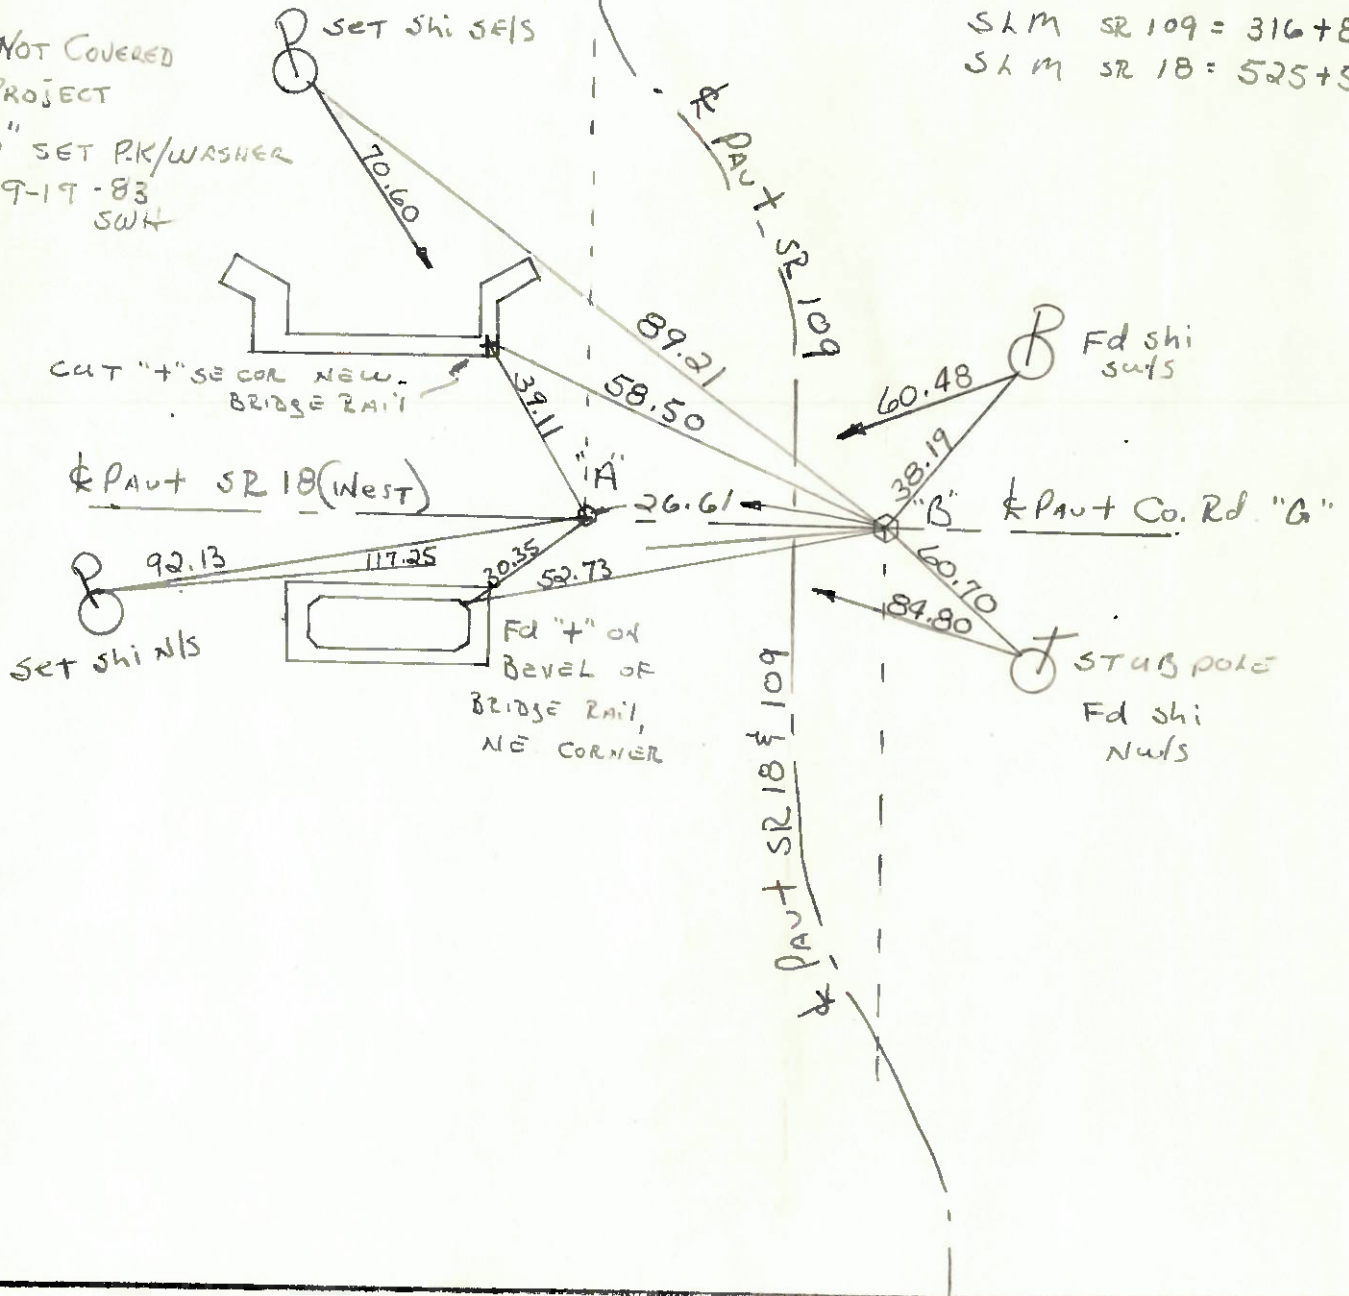 NOT COVERED
PROJECT
" SET P.K/WASHER
9-19-83
SWH
P
SET Shi SE/S
SLM SR 109 = 316+8
SLM SR 18 = 525+5
70.60
℄ PAVT SR 109
89.21
58.50
39.11
CUT "+" SE COR NEW
BRIDGE RAIL
P
Fd Shi
SW/S
60.48
38.19
℄ PAVT SR 18 (WEST)
"A"
26.61
"B"
℄ PAVT Co. Rd. "G"
92.13
117.25
30.35
52.73
60.70
84.80
P
Set Shi N/S
Fd "+" ON
BEVEL OF
BRIDGE RAIL,
NE CORNER
T
STUB POLE
Fd Shi
NW/S
℄ PAVT SR 18 & 109